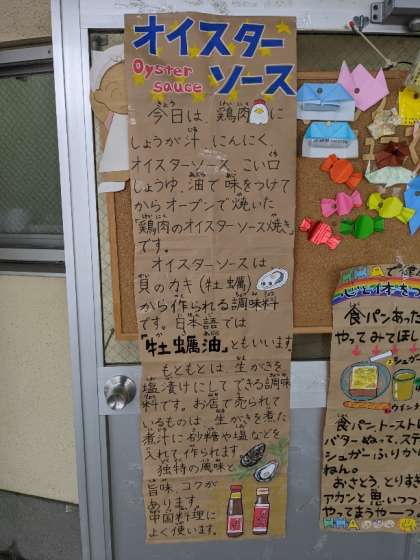 オイスター
Oyster
sauce
ソース
今日は、鶏肉に
しょうが汁、にんにく、
オイスターソース、こい口
しょうゆ、油で味をつけて
からオーブンで焼いた
「鶏肉のオイスターソース焼き」
です。
オイスターソースは
貝のカキ(牡蠣)
から作られる調味料
です。日本語では
「牡蠣油」ともいいます。
もともとは、生がきを
塩漬けにしてできる調味
料です。お店で売られて
いるものは、生がきを煮た
煮汁に砂糖や塩などを
入れて作られます。
独特の風味と、
旨味、コクが
あります。
中国料理に
よく使います。
食パンあった
やってみてほし
シュガー
ウイン
食パン、トーストし
バターぬって、ステ
シュガーふりかけ
ねん。
おさとう、とりすぎ
アカンと思いつつ
やってまうやーつ